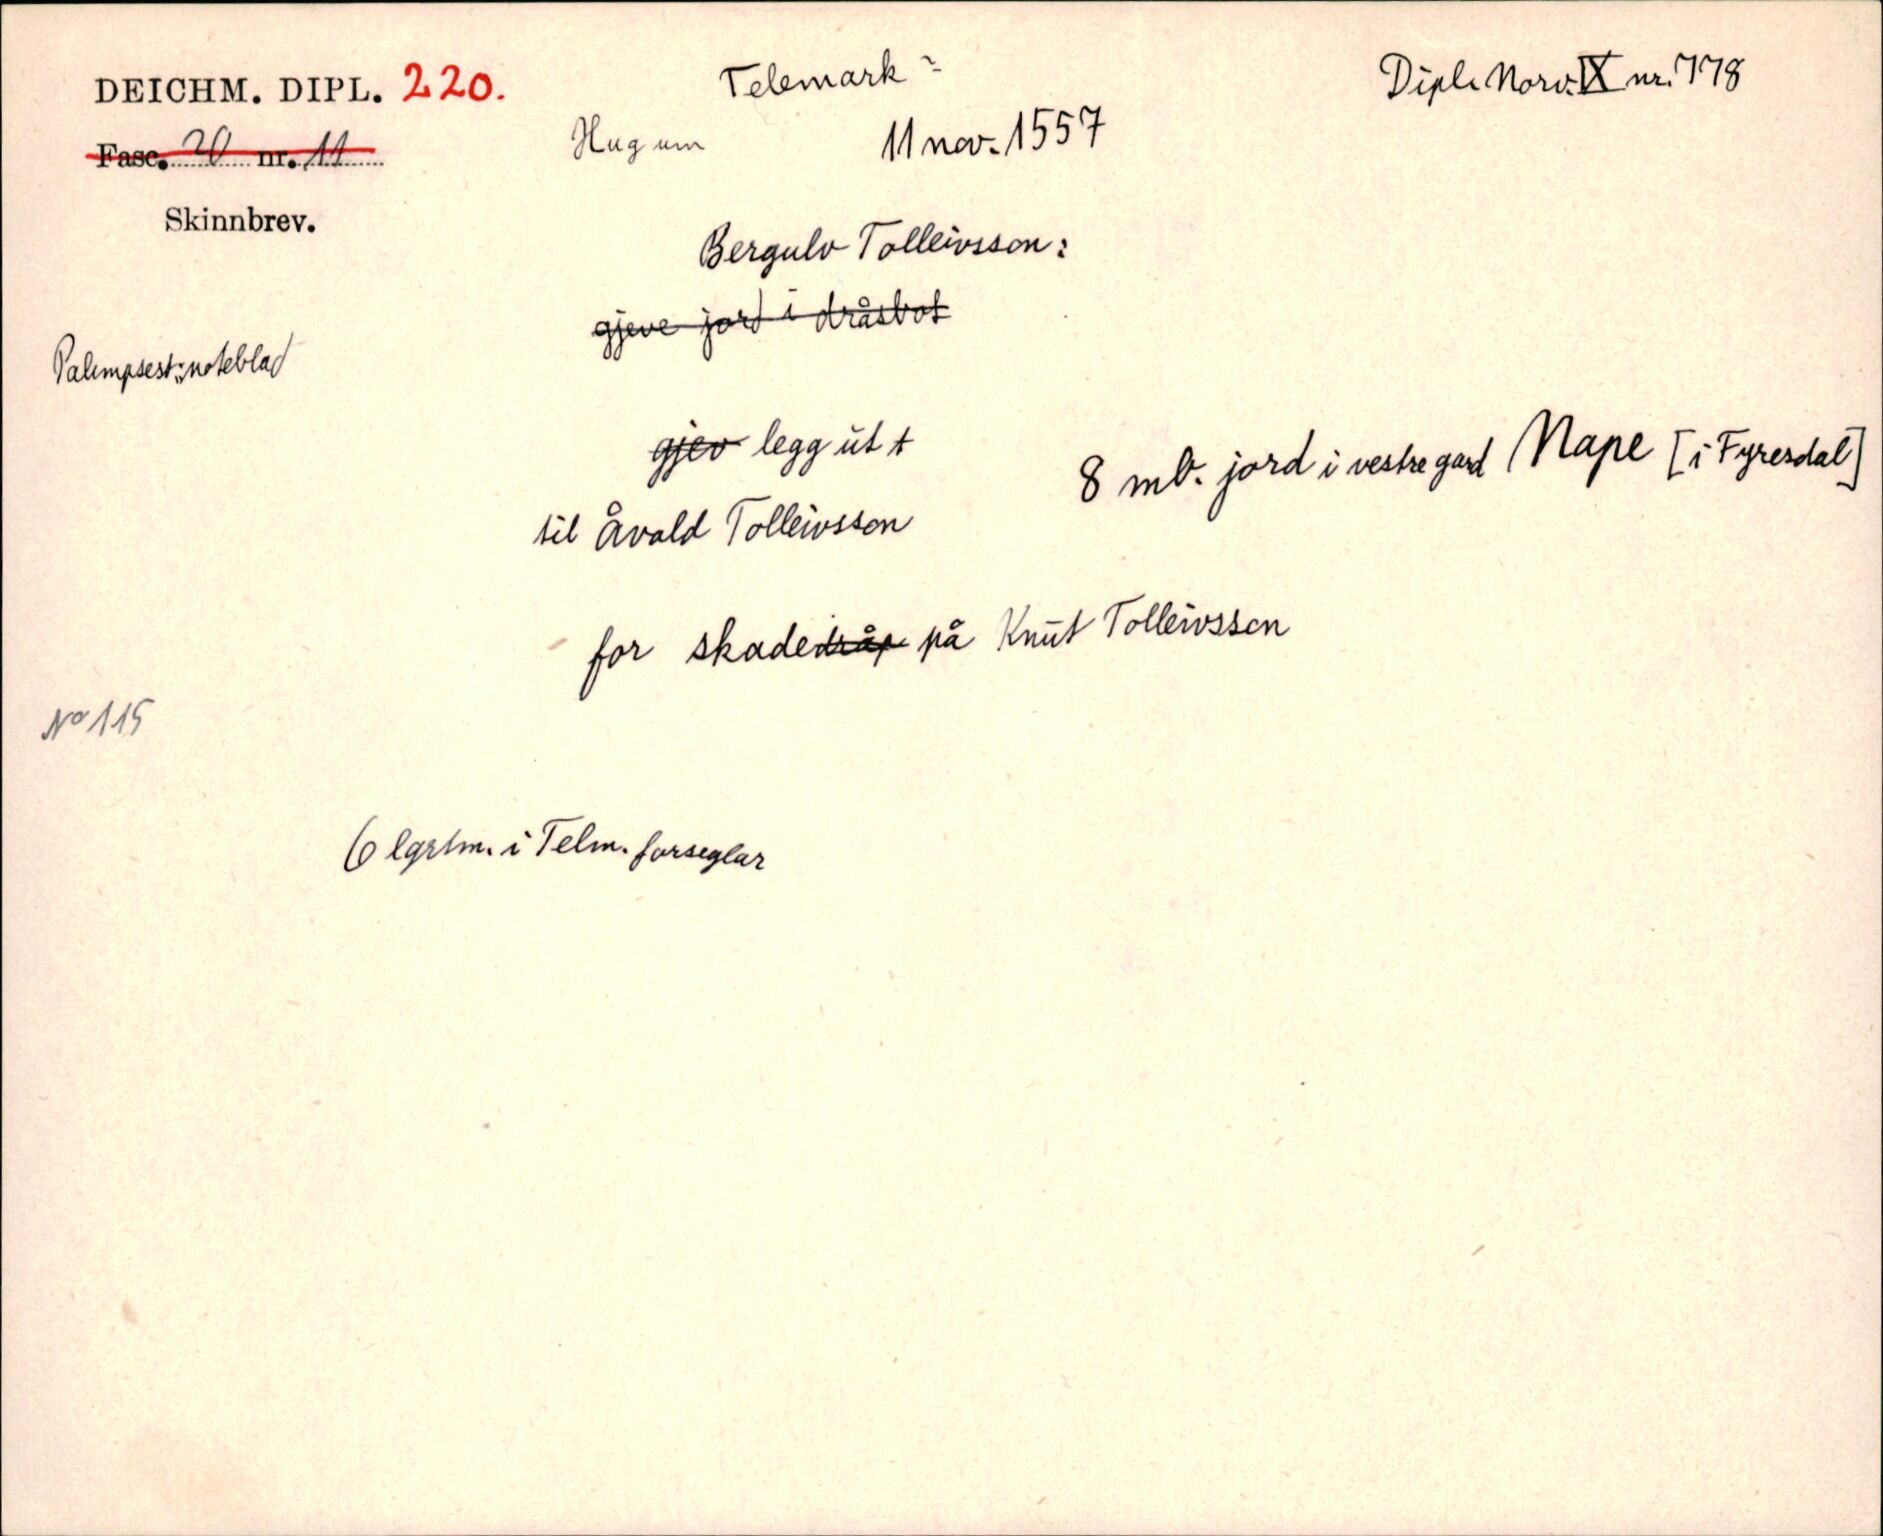 DEICHM. DIPL. 220.
Telemark
Dipl. Norv. IX nr. 778
Fasc. 20 nr. 11
Hug um
11 nov. 1557
Skinnbrev.
Bergulv Tolleivsson:
gjeve jord i dråsbot
Palimpsest: noteblad
gjev legg ut t
8 mb. jord i vestre gard Nape [i Fyresdal]
til Åvald Tolleivsson
for skadedråp på Knut Tolleivsson
No 115
6 lgrtm. i Telm. forseglar